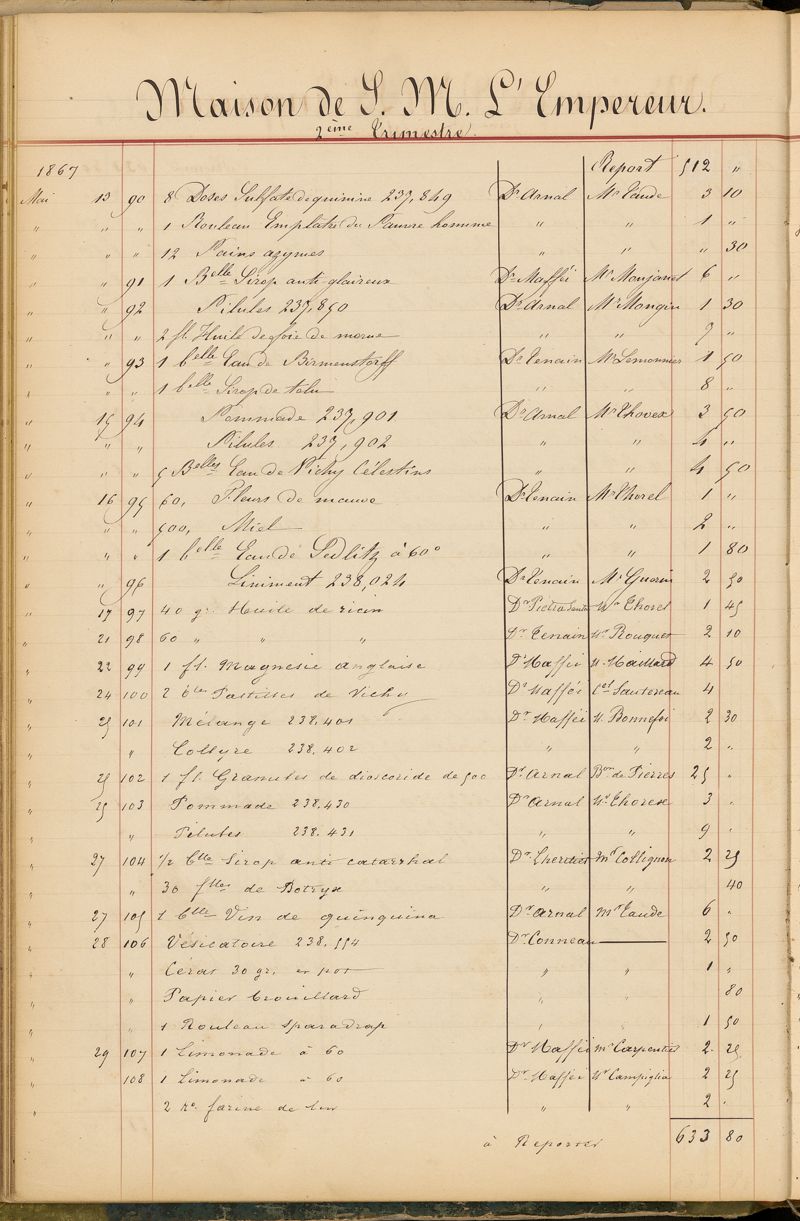 Maison de S. M. L'Empereur.
2ème Trimestre.
1867 Report 512 "
Mai 13 90 8 Doses Sulfate de quinine 237,849 Dr Arnal Mr Eaude 3 10
" " " 1 Rouleau Emplatre du Pauvre homme " " 1 "
" " " 12 Pains azymes " " " 30
" " 91 1 Belle Sirop anti-glaireux Dr Mafféi Mr Monjanet 6 "
" " 92 Pilules 237,850 Dr Arnal Mr Mongin 1 30
" " " 2 fl. Huile de foie de morue " " 9 "
" " 93 1 belle Eau de Birmenstorff Dr Tenain Mr Lemonnier 1 50
" " 1 belle Sirop de tolu " " 8 "
" 15 94 Pommade 237,901 Dr Arnal Mr Thorex 3 50
" " " Pilules 237,902 " " 4 "
" " " 5 Belles Eau de Vichy Célestins " " 4 50
" 16 95 60, Fleurs de mauve Dr Tenain Mr Thorel 1 "
" " " 500, Miel " " 2 "
" " " 1 belle Eau de Sedlitz à 60° " " 1 80
" " 96 Liniment 238,024 Dr Tenain Mr Guérin 2 50
" 17 97 40 gr. Huile de ricin Dr Pietra Santa Mr Thorel 1 45
21 98 60 " " " Dr Tenain Mr Rouquet 2 10
" 22 99 1 fl. Magnésie anglaise Dr Maffei M. Maillard 4 50
24 100 2 btes Pastilles de Vichy Dr Mafféi Cel Sautereau 4
" 25 101 Mélange 238.401 Dr Mafféi M. Bonnefoi 2 30
" " Collyre 238.402 " " 2 "
25 102 1 fl. Granules de dioscoride de 500 Dr Arnal Bon de Pierres 25 "
" 25 103 Pommade 238.430 Dr Arnal Mr Thorex 3 "
" " Pilules 238.431 " " 9 "
" 27 104 1/2 Blle Sirop anti catarrhal Dr Lheritier Mr Collignon 2 25
" 30 flles de Botryx " " 40
" 27 105 1 Blle Vin de quinquina Dr Arnal Mr Eaude 6 "
" 28 106 Vésicatoire 238.554 Dr Conneau 2 50
" " Cérat 30 gr. en pot " " 1 "
" " Papier brouillard " " 80
" " 1 Rouleau Sparadrap " " 1 50
" 29 107 1 Limonade à 60 Dr Maffei Mr Carpentier 2 25
" 108 1 Limonade à 60 Dr Mafféi Mr Campiglia 2 25
" 2 ko. farine de lin " " 2 "
à Reporter 633 80